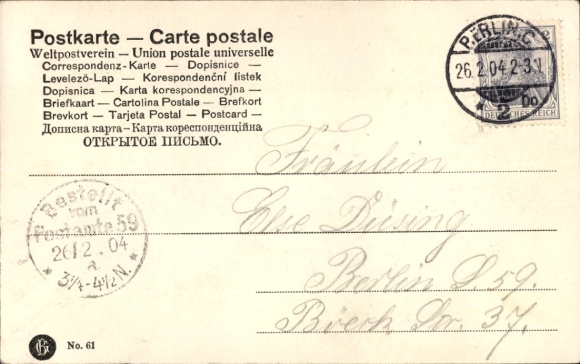 Postkarte — Carte postale
Weltpostverein — Union postale universelle
Correspondenz-Karte — Dopisnice —
Levelező-Lap — Korespondenční lístek
Dopisnica — Karta korespondencyjna —
Briefkaart — Cartolina Postale — Brefkort
Brevkort — Tarjeta Postal — Postcard —
Дописна карта — Карта кореспонденційна
ОТКРЫТОЕ ПИСЬМО.
BERLIN.C
26.2.04.2-3N
* 2
DEUTSCHES REICH
Fräulein
Else Düsing
Berlin S. 59.
Böckh Str. 37.
Bestellt
vom
Postamte 59
26/2.04
3¼-4½N.
No. 61